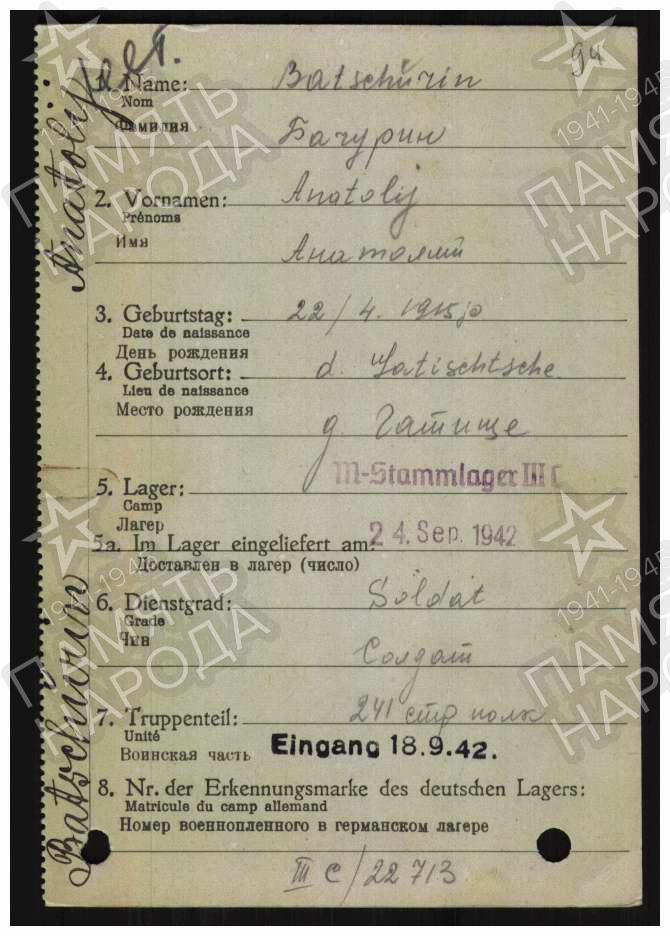 94
1. Name: Batschŭrin
Nom
Фамилия Бачурин
2. Vornamen: Anatolij
Prénoms
Имя Анатолий
3. Geburtstag: 22/4. 1915
Date de naissance
День рождения
4. Geburtsort: d. Gatischtsche
Lieu de naissance
Место рождения
д. Гатище
5. Lager: M-Stammlager III C
Camp
Лагер
5a. Im Lager eingeliefert am: 24. Sep. 1942
Доставлен в лагер (число)
6. Dienstgrad: Soldat
Grade
Чин Солдат
7. Truppenteil: 241 стр полк
Unité
Воинская часть Eingang 18.9.42.
8. Nr. der Erkennungsmarke des deutschen Lagers:
Matricule du camp allemand
Номер военнопленного в германском лагере
III C/22713
Batschŭrin Anatolij
ПАМЯТЬ
НАРОДА
1941-1945